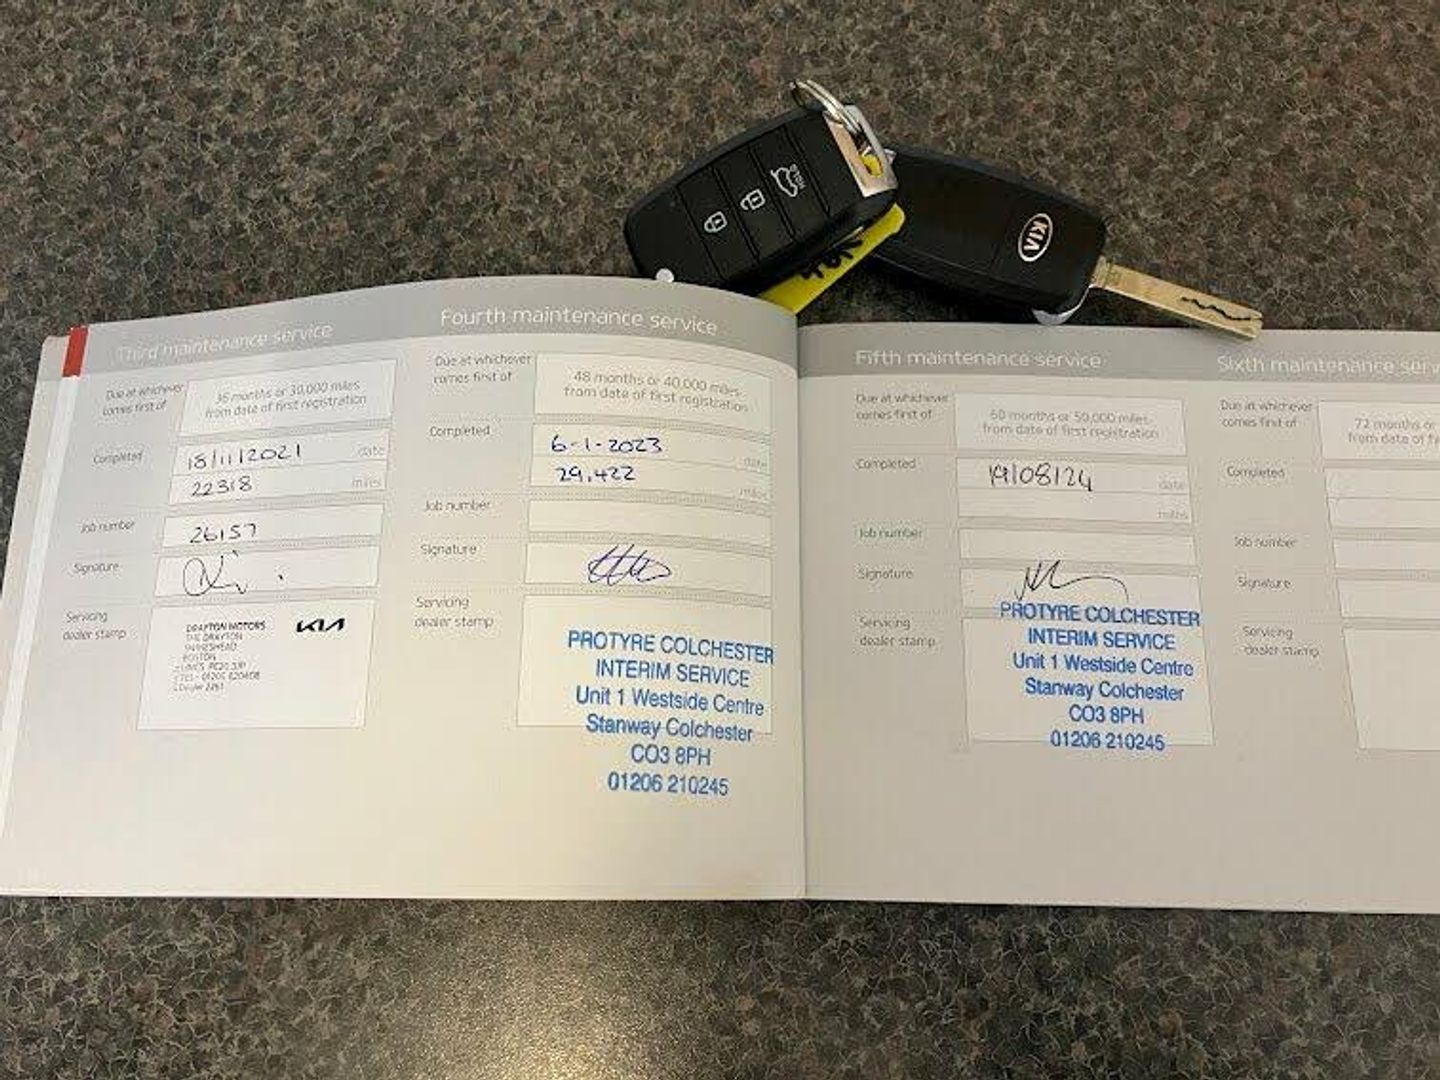 HOLD
KIA
Third maintenance service
Due at whichever
comes first of
36 months or 30,000 miles
from date of first registration
Completed
18/11/2021
date
22318
miles
Job number
26157
Signature
Servicing
dealer stamp
DRAYTON MOTORS
THE DRAYTON
SWINESHEAD
BOSTON
LINCS PE20 3JP
TEL - 01205 820408
KIA
Fourth maintenance service
Due at whichever
comes first of
48 months or 40,000 miles
from date of first registration
Completed
6-1-2023
date
29,422
miles
Job number
Signature
Servicing
dealer stamp
PROTYRE COLCHESTER
INTERIM SERVICE
Unit 1 Westside Centre
Stanway Colchester
CO3 8PH
01206 210245
Fifth maintenance service
Due at whichever
comes first of
60 months or 50,000 miles
from date of first registration
Completed
19/08/24
date
miles
Job number
Signature
Servicing
dealer stamp
PROTYRE COLCHESTER
INTERIM SERVICE
Unit 1 Westside Centre
Stanway Colchester
CO3 8PH
01206 210245
Sixth maintenance serv
Due at whichever
comes first of
72 months or
from date of fi
Completed
Job number
Signature
Servicing
dealer stamp